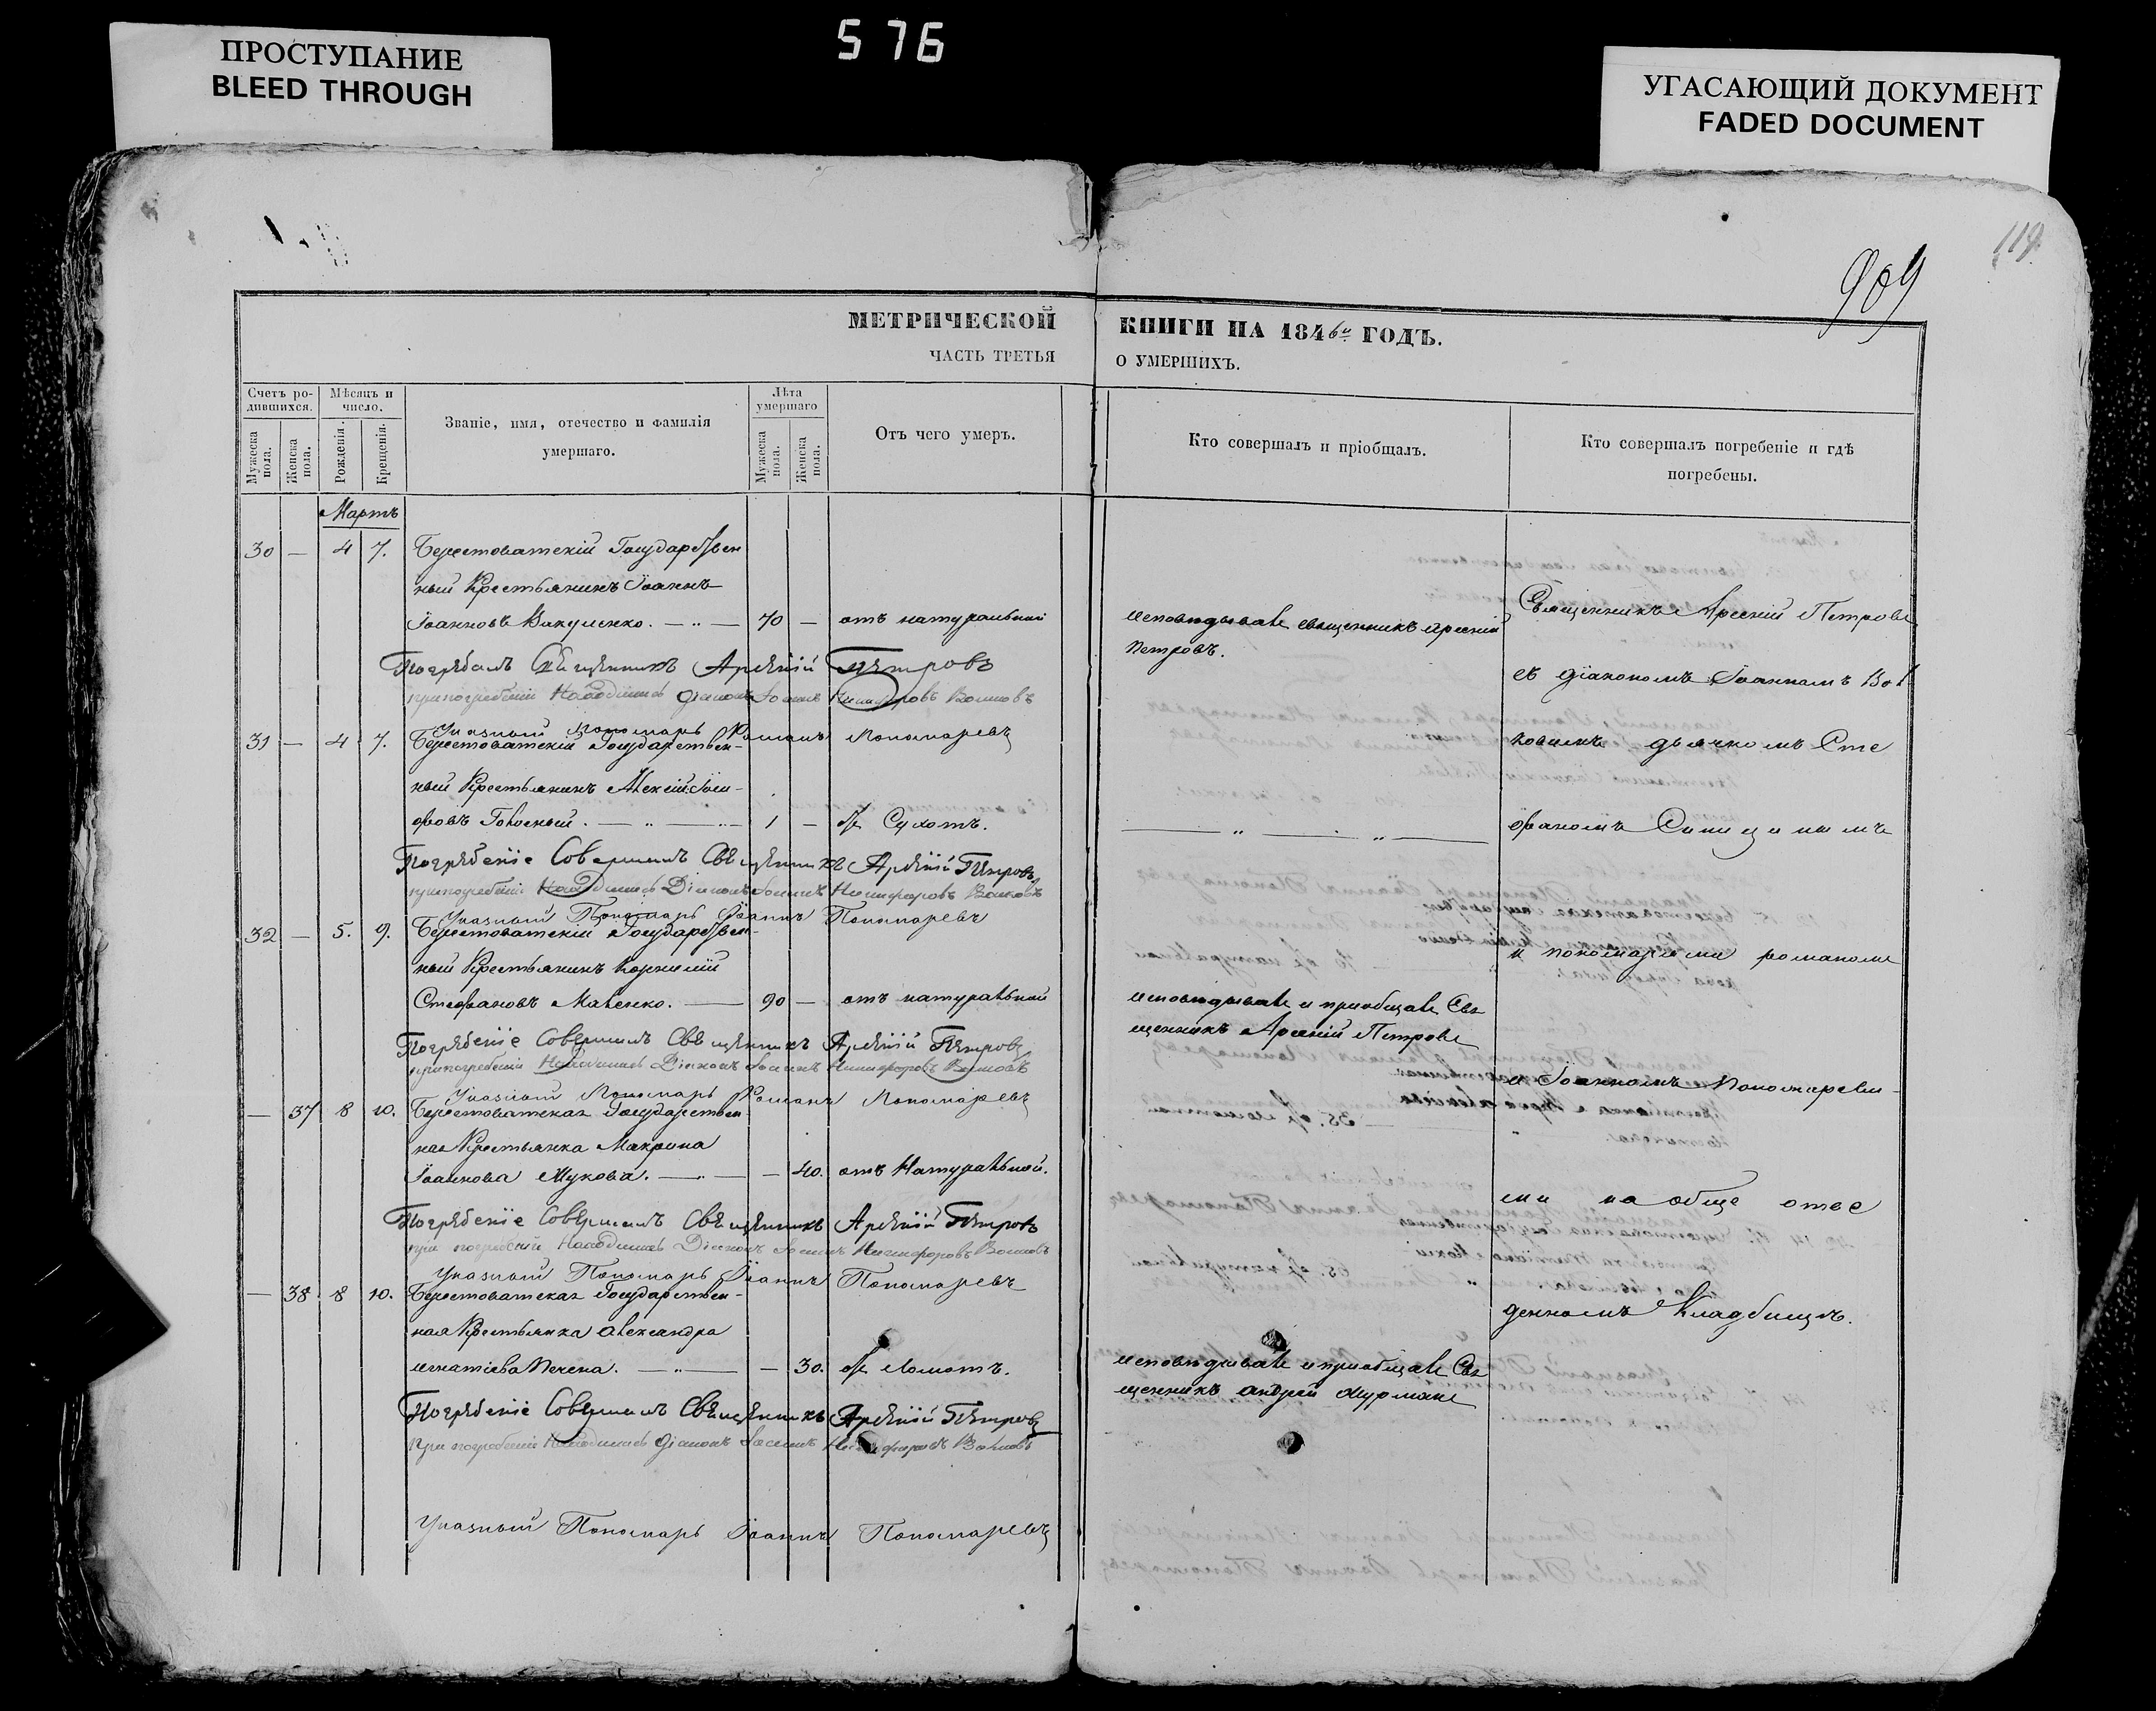 ПРОСТУПАНИЕ
BLEED THROUGH
576
УГАСАЮЩИЙ ДОКУМЕНТ
FADED DOCUMENT
119.
909
МЕТРИЧЕСКОЙ
ЧАСТЬ ТРЕТЬЯ
КНИГИ НА 1846й ГОДЪ.
О УМЕРШИХЪ.
Счетъ ро-
дившихся.
Мужеска пола.
Женска пола.
Мѣсяцъ и
число.
Рожденія.
Крещенія.
Званіе, имя, отечество и фамилія
умершаго.
Лѣта
умершаго
Мужеска пола.
Женска пола.
Отъ чего умеръ.
Кто совершалъ и пріобщалъ.
Кто совершалъ погребеніе и гдѣ
погребены.
Мартъ
30 — 4 7. Берестоватскій Государствен
ный Крестьянинъ Іоаннъ
Іоанновъ Вакуленко. — „ — 70 — отъ натуральной
Погребалъ Священникъ Арсеній Петровъ
при погребеніи Находился Діаконъ Іоаннъ Никифоровъ Волковъ
Указный Пономарь Романъ Пономаревъ
31 — 4 7. Берестоватскій Государствен-
ный Крестьянинъ Алексій
1 — от Сухотъ.
Погребеніе Совершалъ Священникъ Арсеній Петровъ
при погребеніи Находился Діаконъ Іоаннъ Никифоровъ Волковъ
Указный Пономарь Іоаннъ Пономаревъ
32 — 5. 9. Берестоватскій Государствен-
ный Крестьянинъ Корнилій
Стефановъ — 90 — отъ натуральной
Погребеніе Совершалъ Священникъ Арсеній Петровъ
при погребеніи Находился Діаконъ Іоаннъ Никифоровъ Волковъ
Указный Пономарь Романъ Пономаревъ
— 37 8 10. Берестоватская Государствен
ная Крестьянка Макрина
Іоаннова Жукова. — „ — — 40. отъ Натуральной.
Погребеніе Совершалъ Священникъ Арсеній Петровъ
при погребеніи Находился Діаконъ Іоаннъ Никифоровъ Волковъ
Указный Пономарь Іоаннъ Пономаревъ
— 38 8 10. Берестоватская Государствен-
ная Крестьянка Александра
Игнатіева — „ — — 30. от Ломотъ.
Погребеніе Совершалъ Священникъ Арсеній Петровъ
При погребеніи Находился Діаконъ Іоаннъ Никифоровъ Волковъ
Указный Пономарь Іоаннъ Пономаревъ
исповѣдывалъ священникъ Арсеній
Петровъ.
— „ — „ —
исповѣдывалъ и приобщалъ Свя
щенникъ Арсеній Петровъ
исповѣдывалъ и приобщалъ Свя
щенникъ Андрей
Священникъ Арсеній Петровъ
съ діакономъ Іоанномъ Вол
ковымъ дьячкомъ Сте
фаномъ Синицинымъ
и пономарями Романомъ
и Іоанномъ Пономаревы-
ми на обще отве
денномъ Кладбищѣ.